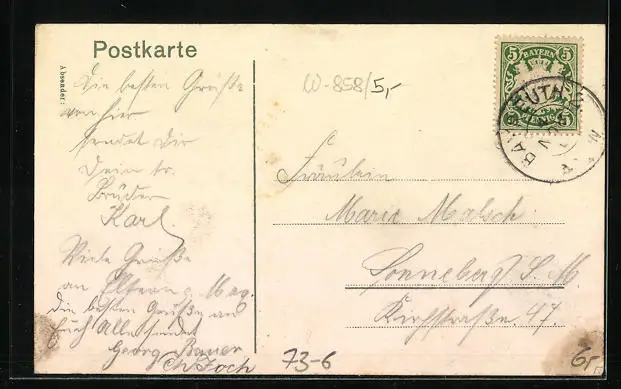 Postkarte
Absender:
Die besten Grüße
von hier
sendet Dir
Dein tr.
Bruder
Karl.
Viele Grüße
an Eltern
die besten Grüße an
Euch Alle sendet
Georg Bauer
W-858/5,-
5 BAYERN 5
PFENNIG
BAYREUTH
Fräulein
Marie Malsch
Sonneberg S. M.
Kirchstraße 47.
73-6